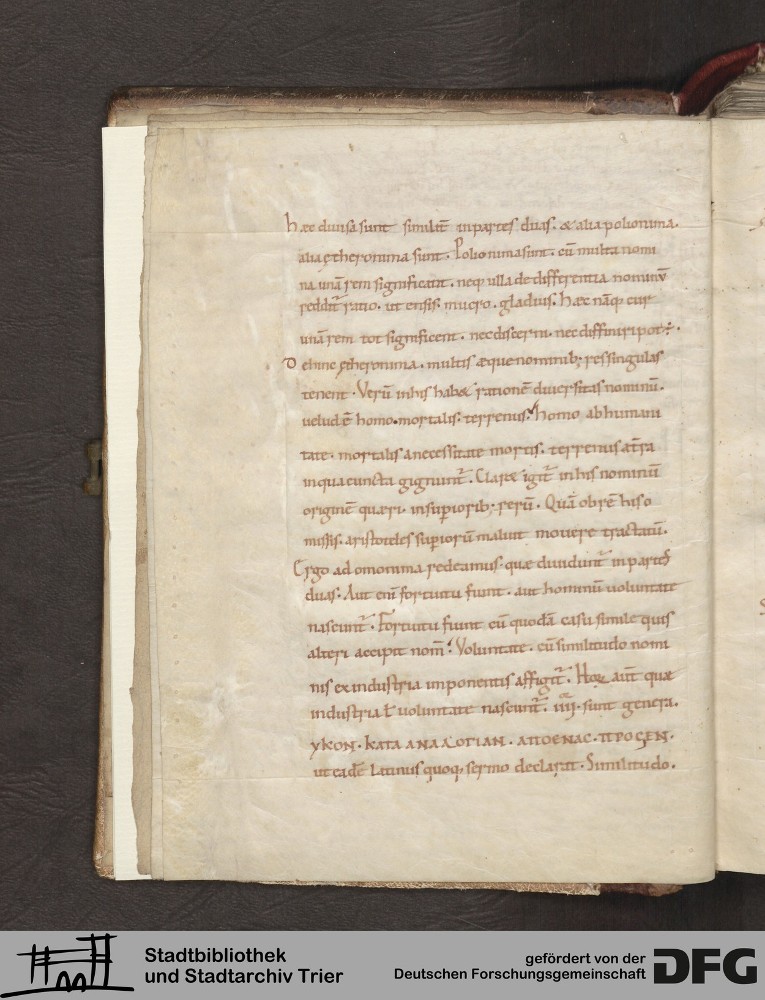 hæc diuisa sunt similit̄ in partes duas. & alia polionima.
alia ętheronima sunt. Polionima sunt. cū multa nomi
na unā rem significant. neq; ulla de differentia nominū
reddit̄ ratio. ut ensis. mucro. gladius. hæc nāq; cur
unā rem tot significent. nec discerni. nec diffiniri pot÷.
Dehinc ętheronima. multis æque nominib; res singulas
tenent. Verū in his hab& rationē diuersitas nominū.
uelud ē homo. mortalis. terrenus. homo ab humani
tate. mortalis a necessitate mortis. terrenus a t̄ra
in qua cuncta gignunt̄. Claræ igit̄ in his nominū
originē quæri. in superiorib; rerū. Quā ob rē his o
missis. aristoteles superiorū maluit mouere tractatū.
Ergo ad omonima redeamus. quæ diuidunt̄ in partes
duas. Aut eni fortuitu fiunt. aut hominū uoluntate
nascunt̄. Fortuitu fiunt cū quodā casu simile quis
alteri accipit nom̄. Voluntate. cū similitudo nomi
nis ex industria imponentis affigit̄. Hor aut̄ quæ
industria ł uoluntate nascunt̄. iiii. sunt genera.
ΥΚΟΝ. ΚΑΤΑ ΑΝΑΛΟΓΙΑΝ. ΑΠΟΕΝΑС. ΠΡΟСΕΝ.
ut eadē Latinus quoq; sermo declarat. Similitudo.
Stadtbibliothek
und Stadtarchiv Trier
gefördert von der
Deutschen Forschungsgemeinschaft
DFG